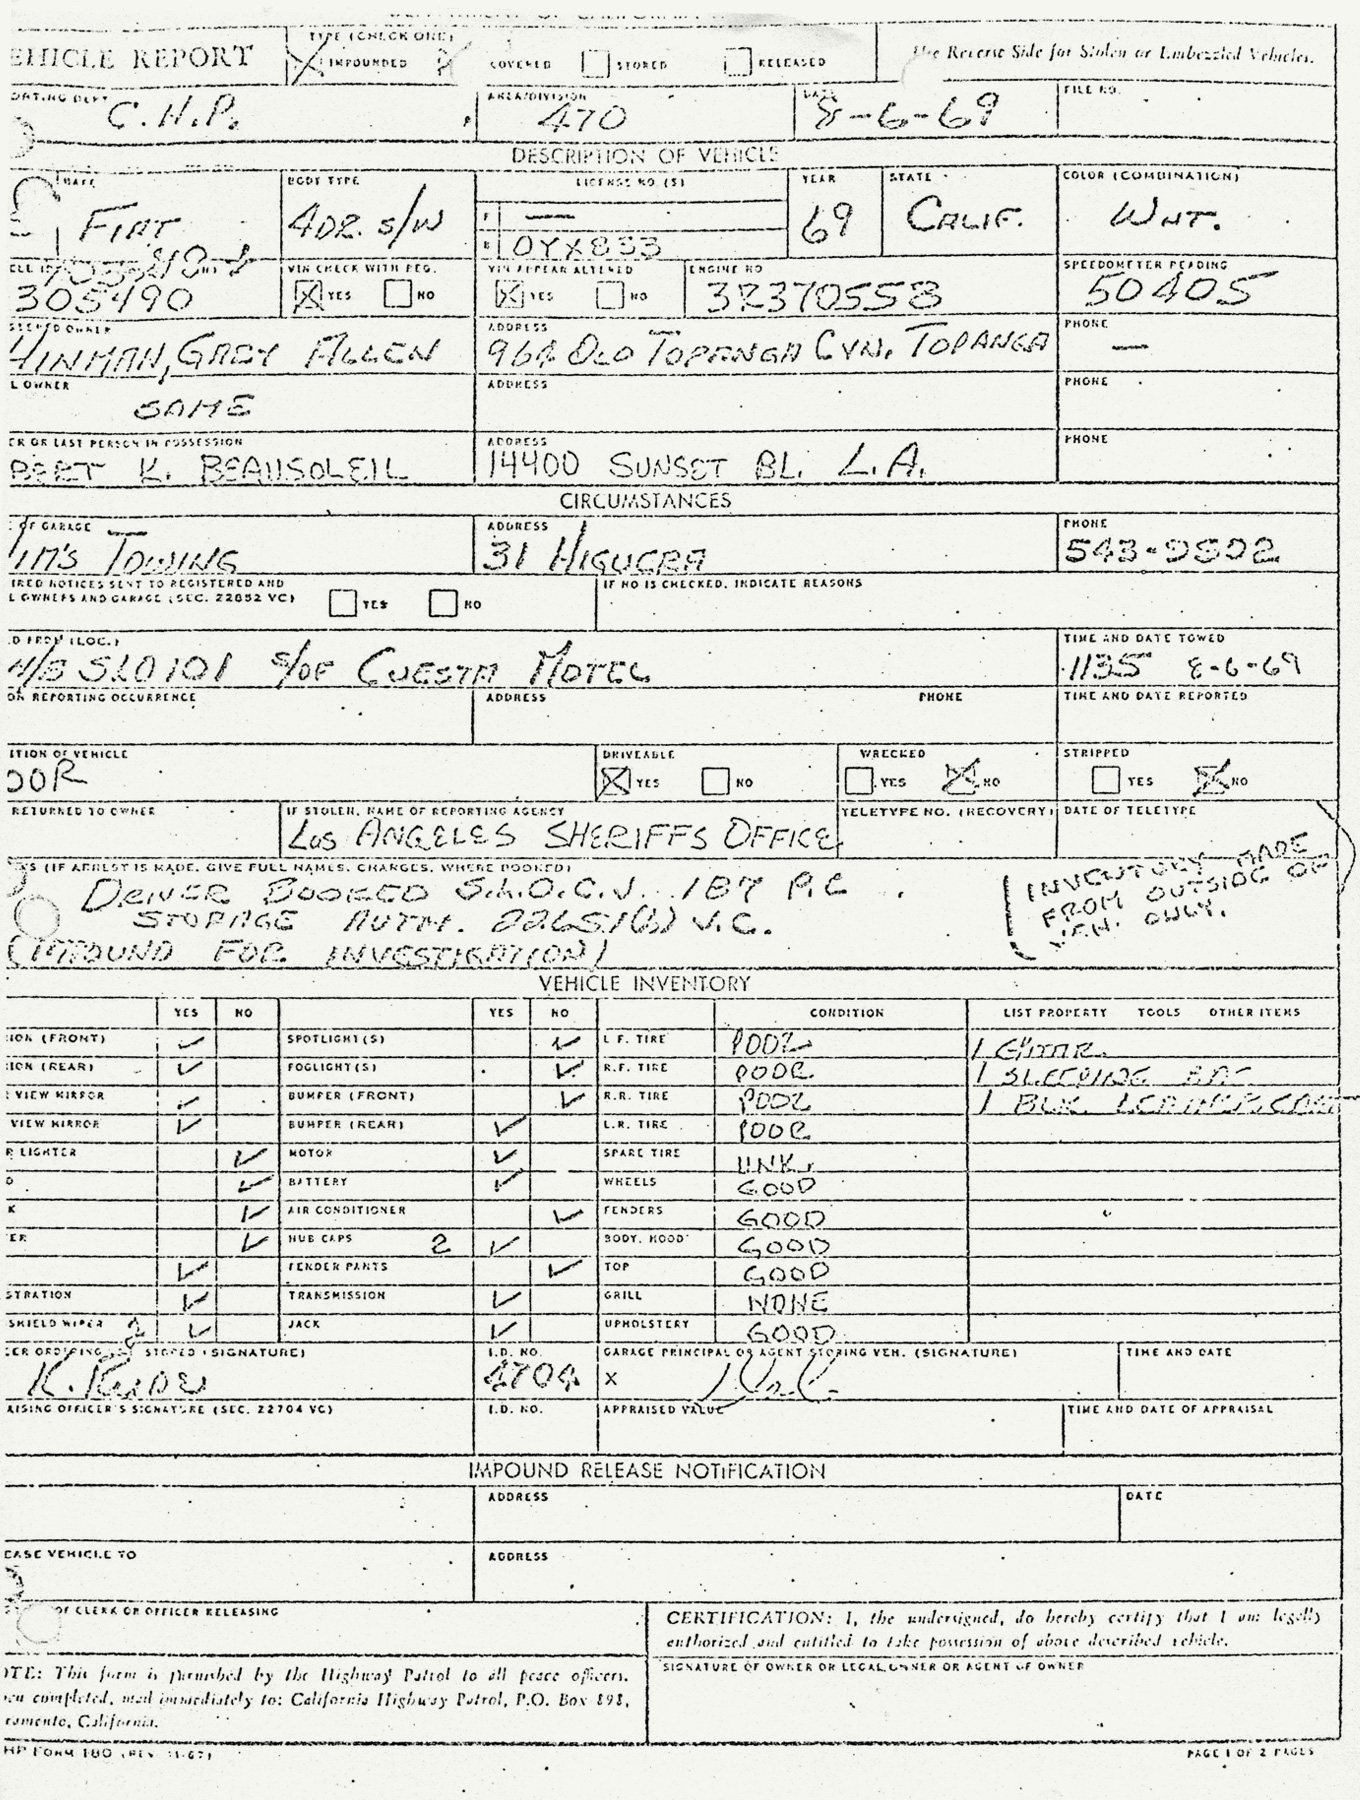 EHICLE REPORT
TYPE (CHECK ONE)
IMPOUNDED COVERED STORED RELEASED
Use Reverse Side for Stolen or Embezzled Vehicles.
ORTING DEPT AREA/DIVISION DATE FILE NO.
C.H.P. 470 8-6-69
DESCRIPTION OF VEHICLE
MAKE BODY TYPE LICENSE NO. (S) YEAR STATE COLOR (COMBINATION)
FIAT 4DR. S/W F — 69 CALIF. WHT.
R OYX833
VIN CHECK WITH REG. VIN APPEAR ALTERED ENGINE NO SPEEDOMETER READING
305490 YES NO YES NO 32370558 50405
STERED OWNER ADDRESS PHONE
HINMAN, GARY ALLEN 964 OLD TOPANGA CYN. TOPANGA —
L OWNER ADDRESS PHONE
SAME
ER OR LAST PERSON IN POSSESSION ADDRESS PHONE
BERT K. BEAUSOLEIL 14400 SUNSET BL. L.A.
CIRCUMSTANCES
OF GARAGE ADDRESS PHONE
TIM'S TOWING 31 HIGUERA 543-9892
IRED NOTICES SENT TO REGISTERED AND IF NO IS CHECKED, INDICATE REASONS
L OWNERS AND GARAGE (SEC. 22852 VC) YES NO
D FROM (LOC.) TIME AND DATE TOWED
N/B SLO 101 S/OF CUESTA MOTEL 1135 8-6-69
ON REPORTING OCCURRENCE ADDRESS PHONE TIME AND DATE REPORTED
ITION OF VEHICLE DRIVEABLE WRECKED STRIPPED
OOR YES NO YES NO YES NO
RETURNED TO OWNER IF STOLEN, NAME OF REPORTING AGENCY TELETYPE NO. (RECOVERY) DATE OF TELETYPE
LOS ANGELES SHERIFFS OFFICE
S (IF ARREST IS MADE, GIVE FULL NAMES, CHARGES, WHERE BOOKED)
DRIVER BOOKED S.L.O.C.J. 187 P.C.
STORAGE AUTH. 22651(b) V.C.
(IMPOUND FOR INVESTIGATION)
INVENTORY MADE
FROM OUTSIDE OF
VEH. ONLY.
VEHICLE INVENTORY
YES NO YES NO CONDITION LIST PROPERTY TOOLS OTHER ITEMS
ION (FRONT) SPOTLIGHT(S) L.F. TIRE POOR 1 GUITAR
ION (REAR) FOGLIGHT(S) R.F. TIRE POOR 1 SLEEPING BAG
VIEW MIRROR BUMPER (FRONT) R.R. TIRE POOR 1 BLK. LEATHER
VIEW MIRROR BUMPER (REAR) L.R. TIRE POOR
R LIGHTER MOTOR SPARE TIRE UNK.
O BATTERY WHEELS GOOD
K AIR CONDITIONER FENDERS GOOD
ER HUB CAPS 2 BODY, HOOD GOOD
FENDER PANTS TOP GOOD
STRATION TRANSMISSION GRILL NONE
SHIELD WIPER 2 JACK UPHOLSTERY GOOD
CER ORDERING STORED (SIGNATURE) I.D. NO. GARAGE PRINCIPAL OR AGENT STORING VEH. (SIGNATURE) TIME AND DATE
4704 X
AISING OFFICER'S SIGNATURE (SEC. 22704 VC) I.D. NO. APPRAISED VALUE TIME AND DATE OF APPRAISAL
IMPOUND RELEASE NOTIFICATION
ADDRESS DATE
EASE VEHICLE TO ADDRESS
OF CLERK OR OFFICER RELEASING
CERTIFICATION: I, the undersigned, do hereby certify that I am legally
authorized and entitled to take possession of above described vehicle.
SIGNATURE OF OWNER OR LEGAL OWNER OR AGENT OF OWNER
OTE: This form is furnished by the Highway Patrol to all peace officers.
en completed, mail immediately to: California Highway Patrol, P.O. Box 898,
ramento, California.
HP FORM 180 (REV. 11-67) PAGE 1 OF 2 PAGES